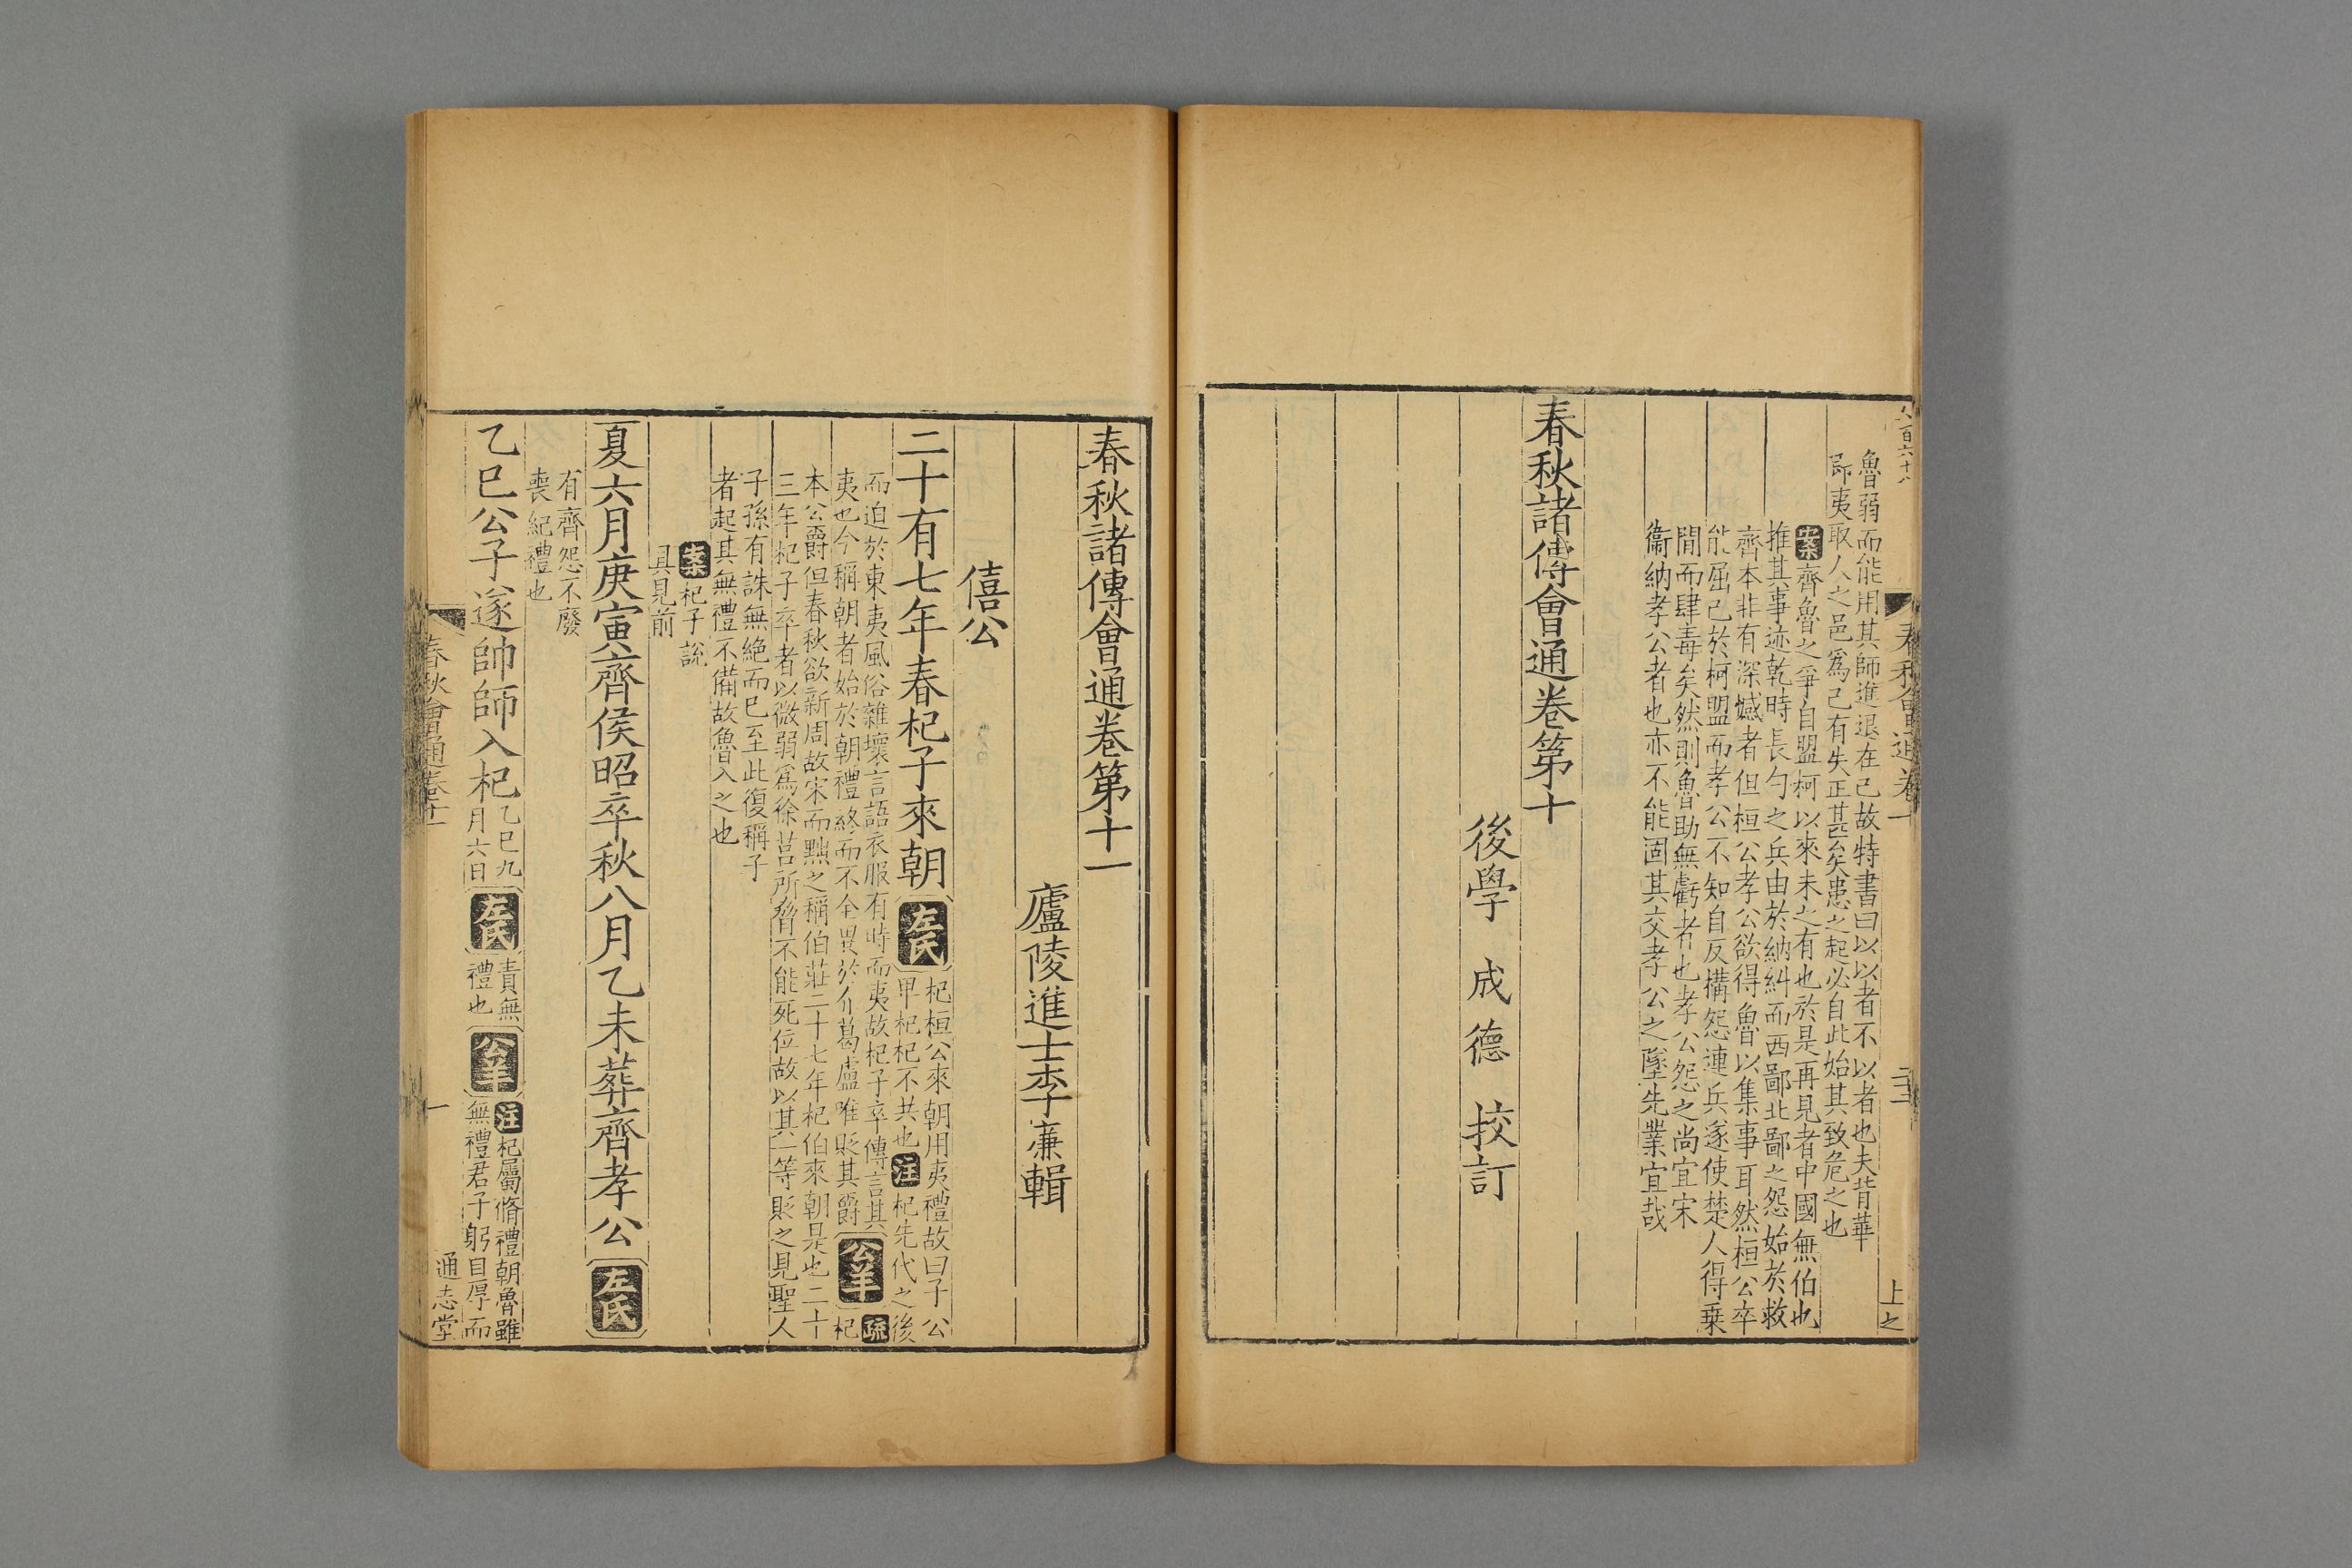 魯弱而能用其師進退在己故特書曰以以者不以者也夫背華
即夷取人之邑爲己有失正甚矣患之起必自此始其致危之也
案齊魯之爭自盟柯以來未之有也於是再見者中國無伯也
推其事迹乾時長勺之兵由於納糾而西鄙北鄙之怨始於救
齊本非有深憾者但桓公孝公欲得魯以集事耳然桓公卒
能屈己於柯盟而孝公不知自反構怨連兵遂使楚人得乗
間而肆毒矣然則魯助無虧者也孝公怨之尚宜宋
衞納孝公者也亦不能固其交孝公之墜先業宜哉
春秋諸傳會通卷第十
後學 成德 挍訂
上之
春秋諸傳會通卷第十一
廬陵進士李廉輯
僖公
二十有七年春杞子來朝左氏杞桓公來朝用夷禮故曰子公
卑杞杞不共也注杞先代之後
而迫於東夷風俗雜壞言語衣服有時而夷故杞子卒傳言其
夷也今稱朝者始於朝禮終而不全異於介葛盧唯貶其爵公羊疏杞
本公爵但春秋欲新周故宋而黜之稱伯莊二十七年杞伯來朝是也二十
三年杞子卒者以微弱爲徐莒所脅不能死位故以其一等貶之見聖人
子孫有誅無絶而已至此復稱子
者起其無禮不備故魯入之也
案杞子說
具見前
夏六月庚寅齊侯昭卒秋八月乙未葬齊孝公左氏
有齊怨不廢
喪紀禮也
乙巳公子遂帥師入杞乙巳九
月六日左氏責無
禮也公羊注杞屬脩禮朝魯雖
無禮君子躬自厚而
春秋會通卷十一
一
通志堂